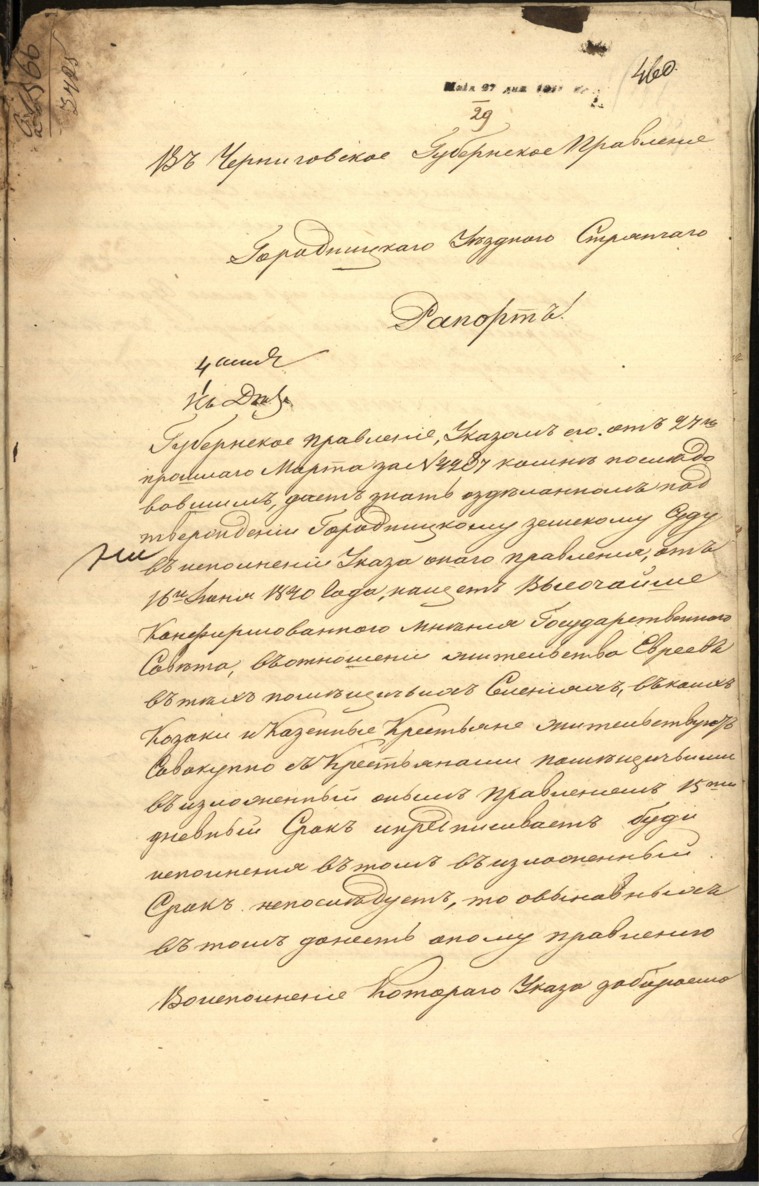 460.
Маія 27 дня
29
3425
Въ Черниговское Губернское Правленіе
Городницкаго Уѣзднаго Стряпчаго
Рапортъ!
Губернское правленіе, Указомъ его отъ 27го
прошлаго Марта за № комнѣ послѣдо
вавшимъ, даетъ знать о здѣланномъ под
твержденіи Городницкому земскому Суду
въ исполненіи Указа онаго правленія, отъ
16го Іюня 1820 года, нащетъ Высочайше
Конфирмованнаго мнѣнія Государственнаго
Совѣта, въ отношеніи жительства Евреевъ
въ тѣхъ помѣщичьихъ Селеніяхъ, въ каихъ
Козаки и Казенные Крестьяне жительствуютъ
Совокупно съ Крестьянами помѣщичьими
въ изложенный онымъ правленіемъ 15ти
дневный Срокъ и предписываетъ буди
исполненія въ томъ въ изложенный
Срокъ непослѣдуетъ, то овыновныхъ
въ томъ донесть оному правленію
Воисполненіе Котораго Указа